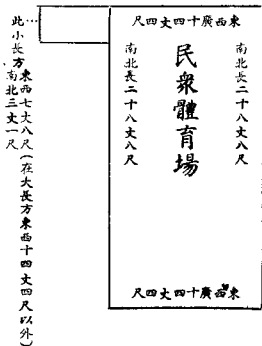 東西廣十四丈四尺
南北長二十八丈八尺
民衆體育場
南北長二十八丈八尺
東西廣十四丈四尺
此小長方
東西七丈八尺(在大長方東西十四丈四尺以外)
南北三丈一尺